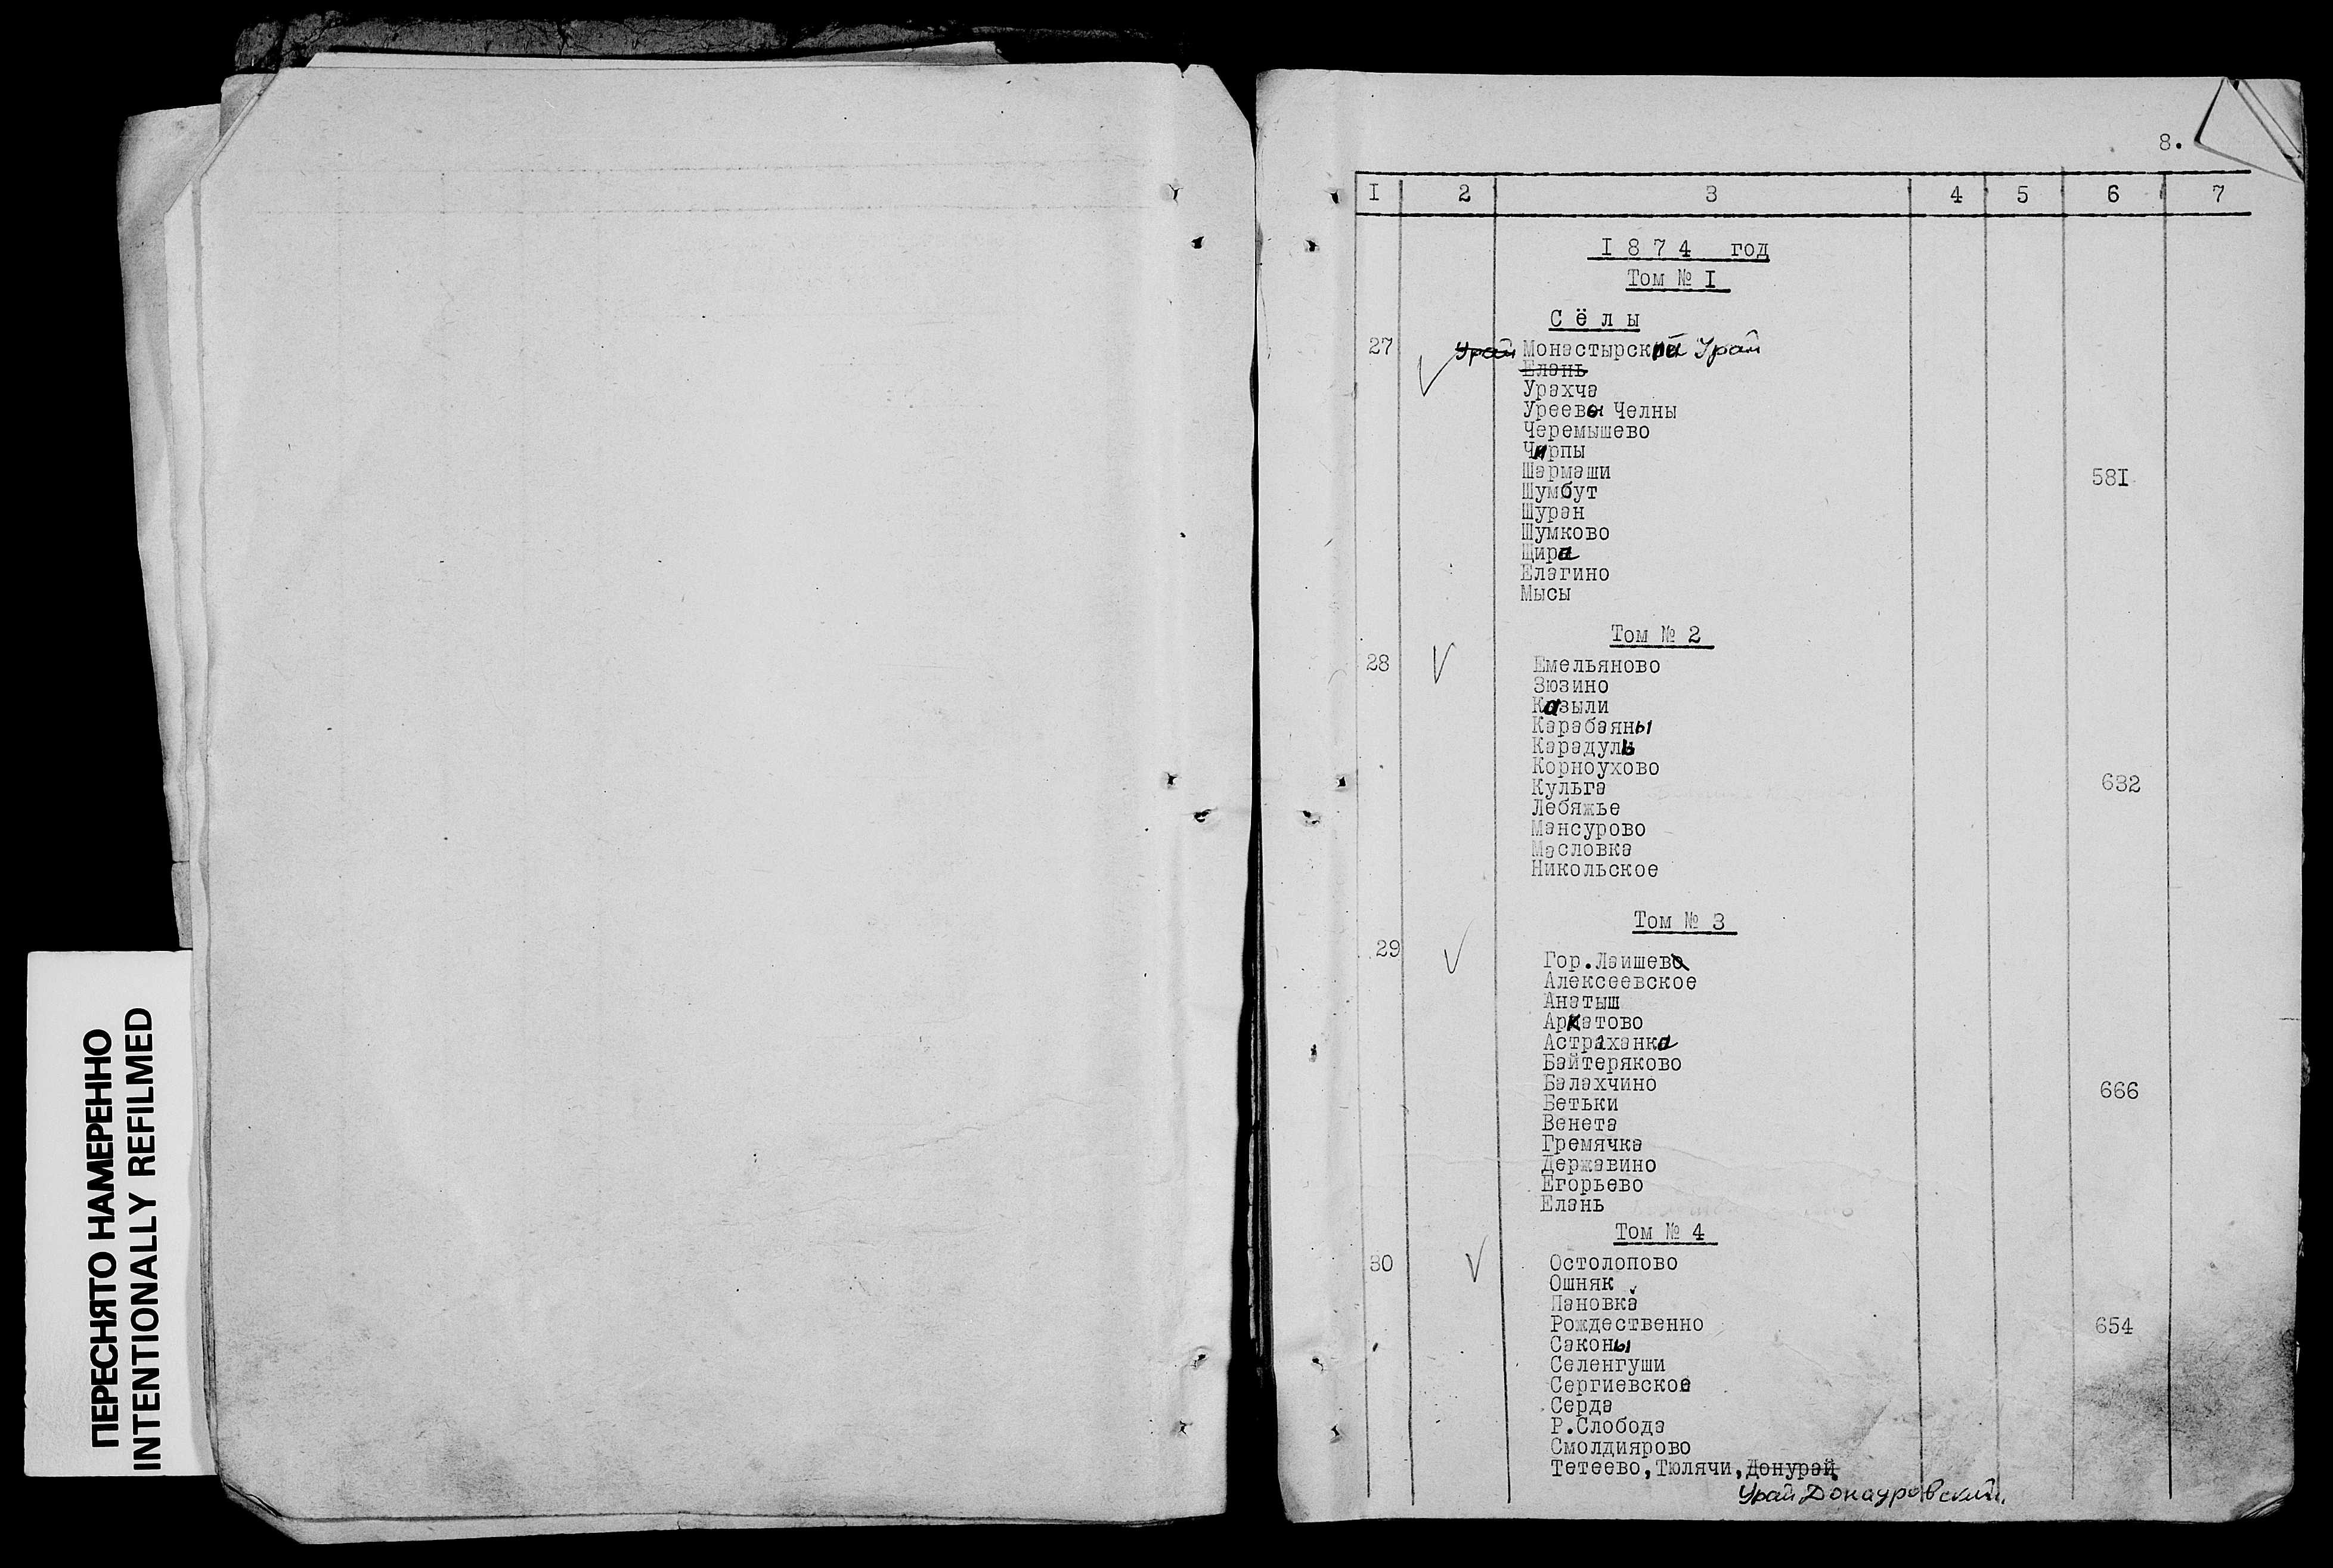 ПЕРЕСНЯТО НАМЕРЕННО
INTENTIONALLY REFILMED
8.
I 2 3 4 5 6 7
I 8 7 4 год
Том № I
С ё л ы
27 Урай Монастырский Урай
Елань
Урахча
Уреевы Челны
Черемышево
Чирпы
Шармаши 581
Шумбут
Шуран
Шумково
Щира
Елагино
Мысы
Том № 2
28 Емельяново
Зюзино
Казыли
Карабаяны
Карадуль
Корноухово
Кульга 632
Лебяжье
Мансурово
Масловка
Никольское
Том № 3
29 Гор.Лаишево
Алексеевское
Анатыш
Аркатово
Астраханка
Байтеряково
Балахчино 666
Бетьки
Венета
Гремячка
Державино
Егорьево
Елань
Том № 4
30 Остолопово
Ошняк
Пановка
Рождественно 654
Саконы
Селенгуши
Сергиевское
Серда
Р.Слобода
Смолдиярово
Тетеево,Тюлячи,Донурай
Урай Донауровский